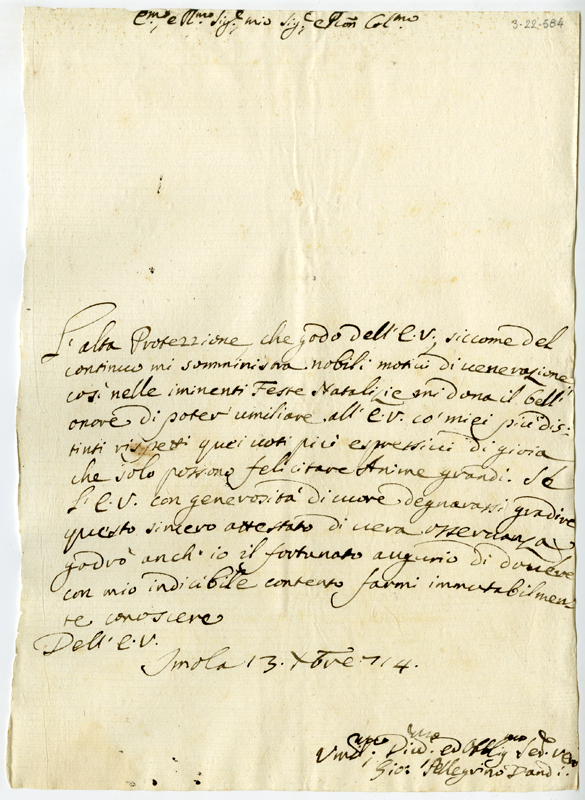 3-22-584
E.mo e R.mo Sig.r mio Sig.r e Pron Col.mo
L'alta Protezzione che godo dell'E.V., siccome del
continuo mi somministra nobili motivi di venerazione,
così nelle iminenti Feste Natalizie mi dona il bell'
onore di poter' umiliare all'E.V. co' miei più dis-
tinti rispetti quei voti più espressivi di gioia
che solo possono felicitare Anime grandi. Se
L'E.V. con generosità di cuore degnarassi gradire
questo sincero attestato di vera osservanza
godrò anch'io il fortunato augurio di dovere
con mio indicibile contento farmi immutabilmen
te conoscere
Dell'E.V.
Imola 13. Xbre 714.
Vmil.mo Div.mo ed Obblig.mo Sed.re Vero
Gio: Pellegrino Dandi.